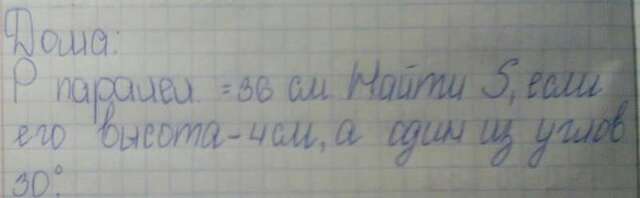 Дома:
P паралел = 36 см Найти S, если
его высота - 4см, а один из углов
30°.